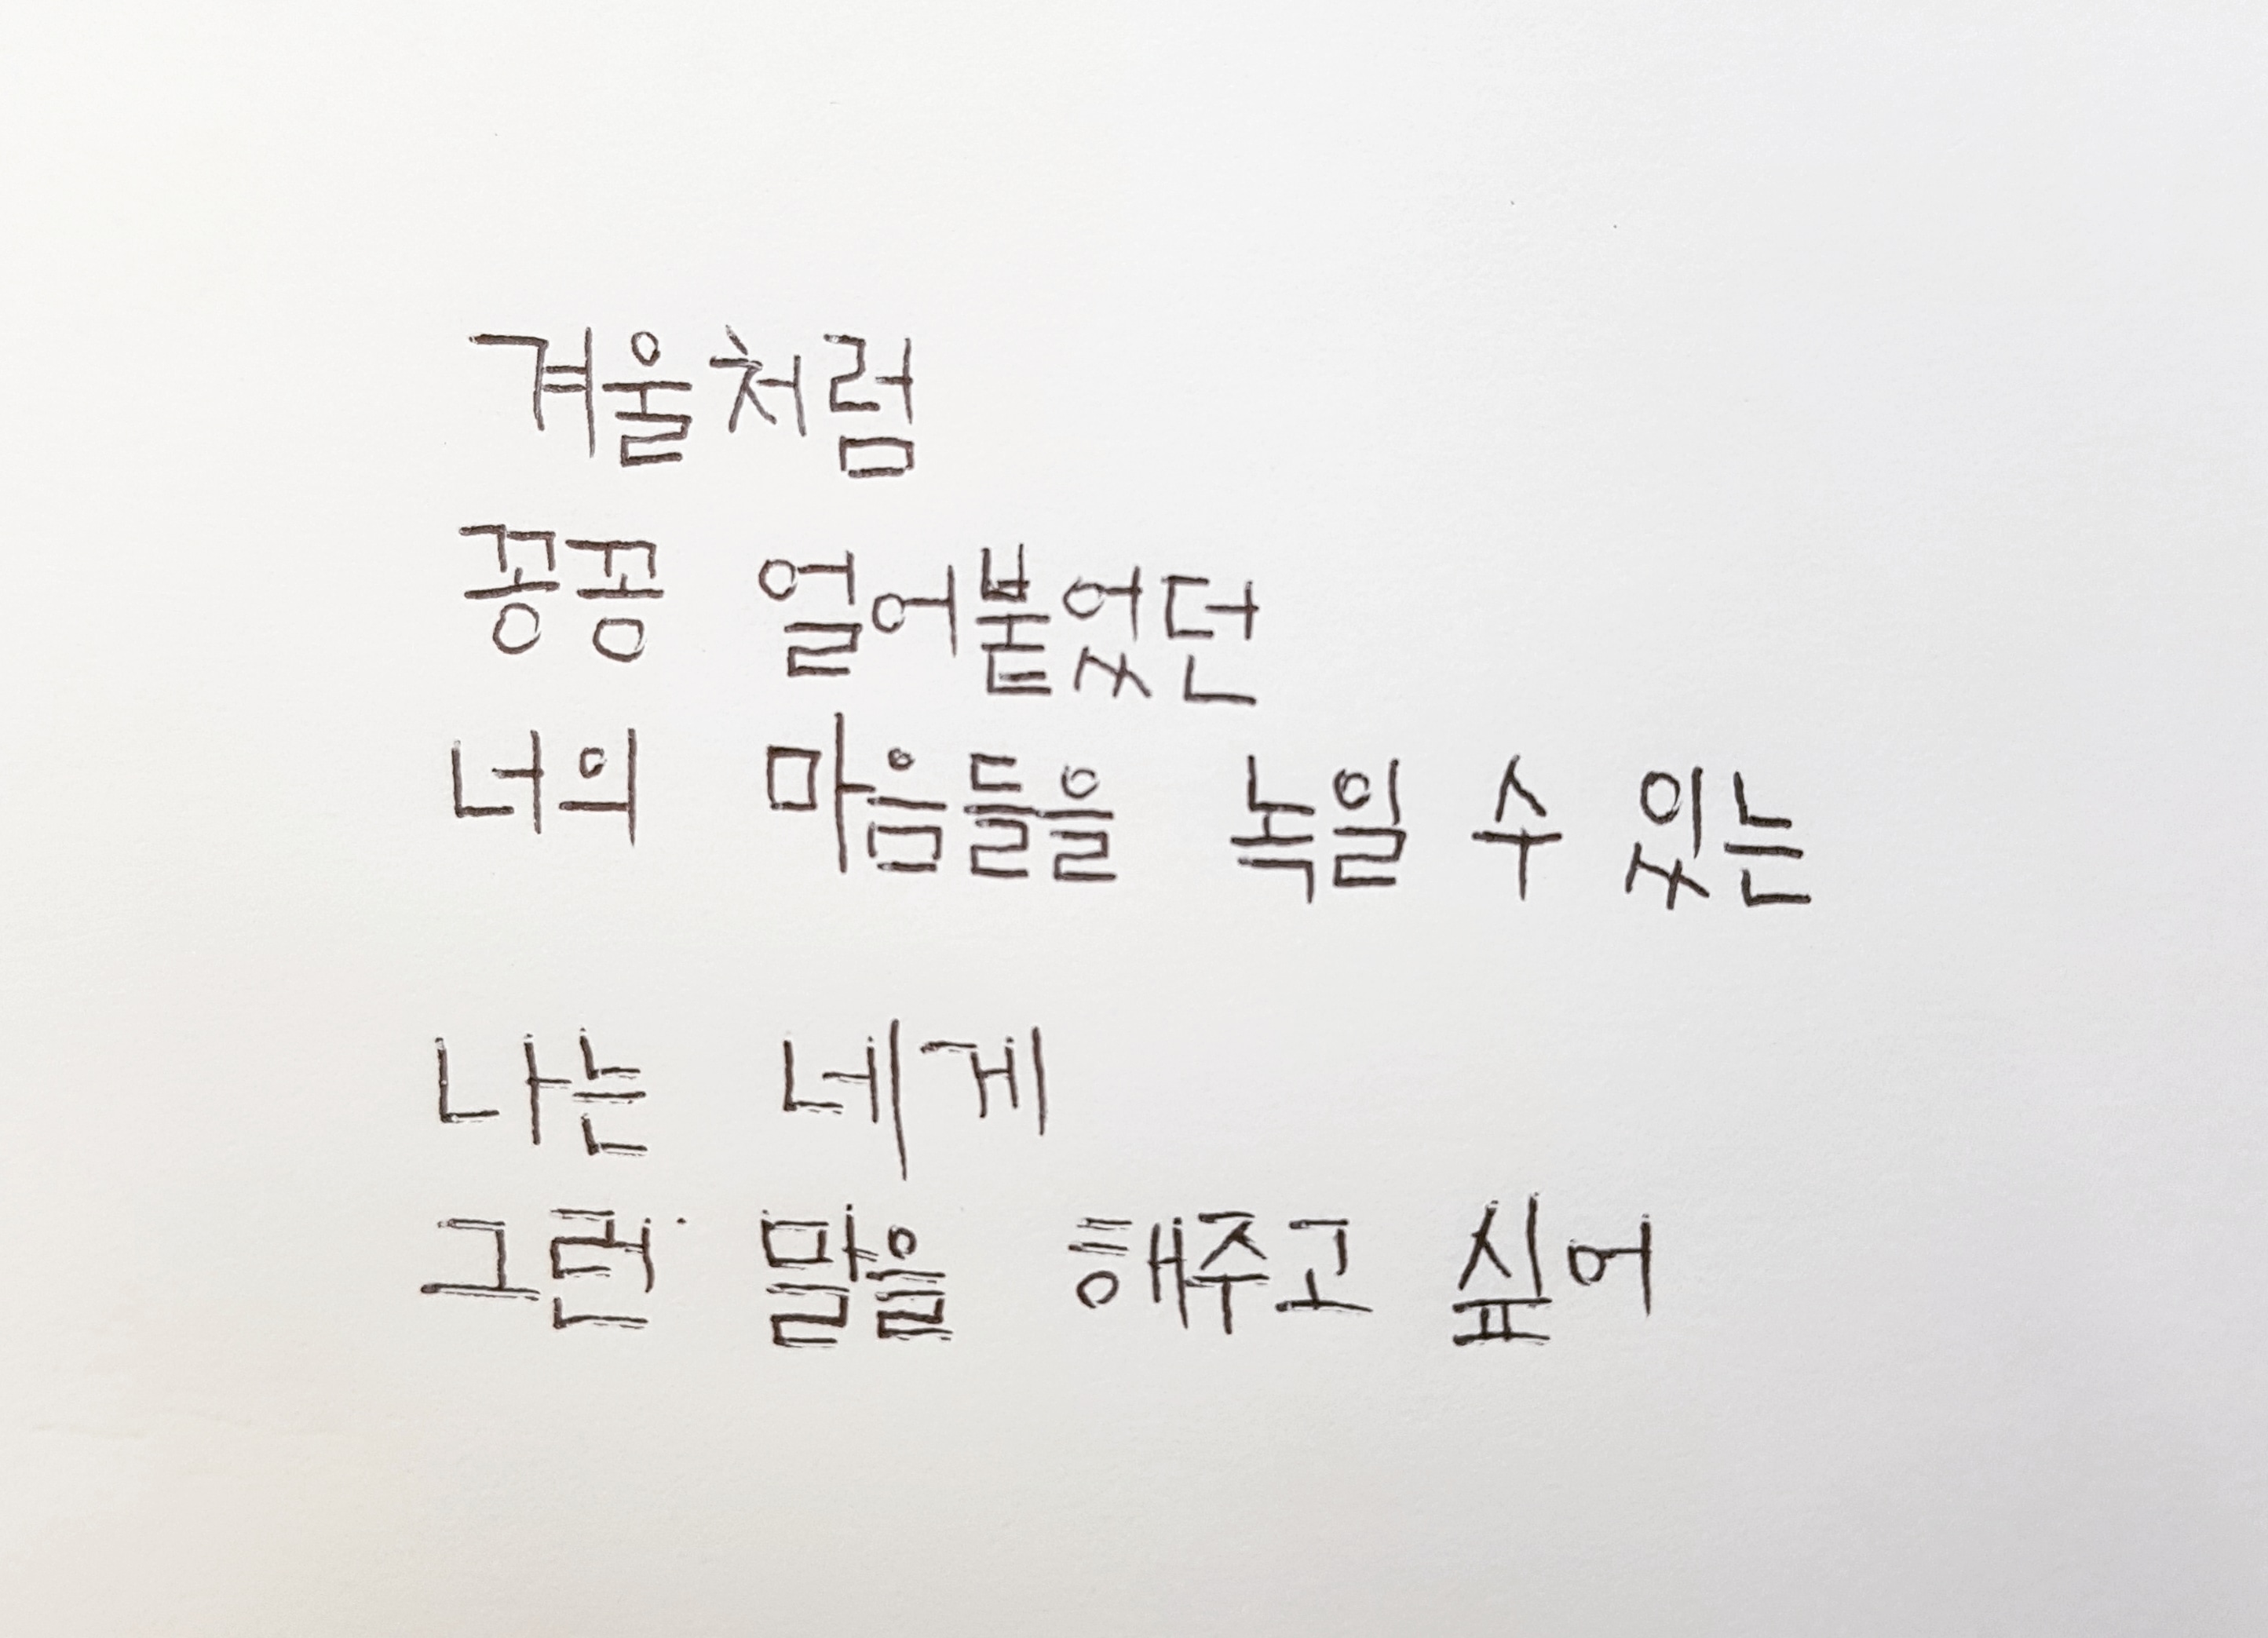 겨울처럼
꽁꽁 얼어붙었던
너의 마음들을 녹일 수 있는
나는 네게
그런 말을 해주고 싶어